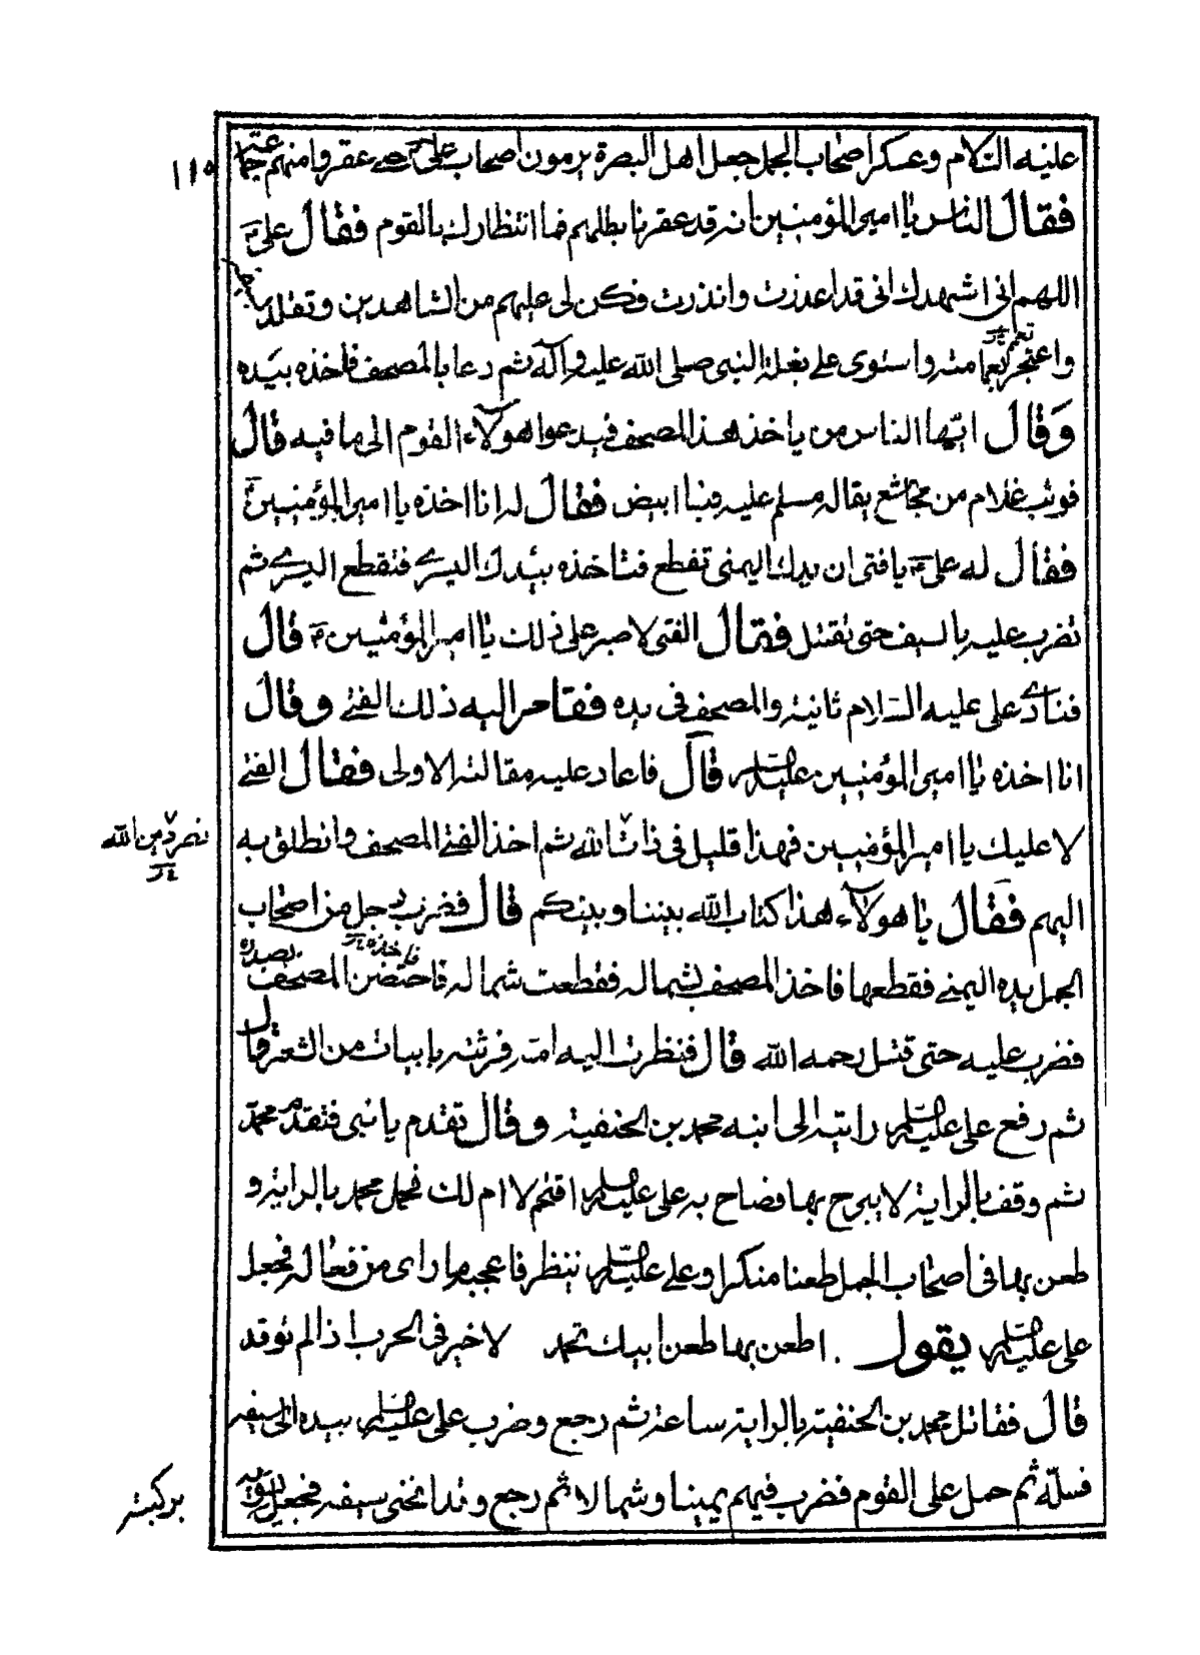 عليه السلام وعسكر اصحاب الجمل جعل اهل البصرة يرمون اصحاب على حتى عقروا منهم جماعة
١١٥
فقال الناس يا امير المؤمنين انه قد عقرنا نبلهم فما انتظارك بالقوم فقال على
اللهم انى اشهدك انى قد اعذرت وانذرت فكن لى عليهم من الشاهدين وتقلد
واعتجر بعمامته واستوى على بغلة النبى صلى الله عليه وآله ثم دعا بالمصحف فاخذه بيده
وقال ايها الناس من ياخذ هذا المصحف فيدعوا هولاء القوم الى ما فيه قال
فوثب غلام من مجاشع يقال له مسلم عليه قبا ابيض فقال له انا اخذه يا امير المؤمنين
فقال له على يا فتى ان يدك اليمنى تقطع فتاخذه بيدك اليسرى فتقطع اليسرى ثم
تضرب عليه بالسيف حتى تقتل فقال الفتى لا صبر على ذلك يا امير المؤمنين قال
فنادى على عليه السلام ثانية والمصحف فى يده فقام اليه ذلك الفتى وقال
انا اخذه يا امير المؤمنين عليه السلم قال فاعاد عليه مقالته الاولى فقال الفتى
لا عليك يا امير المؤمنين فهذا قليل فى ذات الله ثم اخذ الفتى المصحف وانطلق به
نصر من الله
اليهم فقال يا هولاء هذا كتاب الله بيننا وبينكم قال فضرب رجل من اصحاب
الجمل يده اليمنى فقطعها فاخذ المصحف بشماله فقطعت شماله فاحتضن المصحف بصدره
فضرب عليه حتى قتل رحمه الله قال فنظرت اليه امه فرثته بابيات من الشعر قال
ثم رفع على عليه السلم رايته الى ابنه محمد بن الحنفية وقال تقدم يا بنى فتقدم محمد
ثم وقف بالراية لا يبرح بها فصاح به على عليه السلم اقتحم لا ام لك فحمل محمد بالراية و
طعن بها فى اصحاب الجمل طعنا منكرا وعلى عليه السلم ينظر فاعجبه ما راى من فعاله فجعل
على عليه السلم يقول اطعن بها طعن ابيك تحمد لا خير فى الحرب اذا لم توقد
قال فقاتل محمد بن الحنفية بالراية ساعة ثم رجع وضرب على عليه السلم بيده الى سيفه
فسله ثم حمل على القوم فضرب فيهم يمينا وشمالا ثم رجع وقد انحنى سيفه فجعل يسويه
بركبته